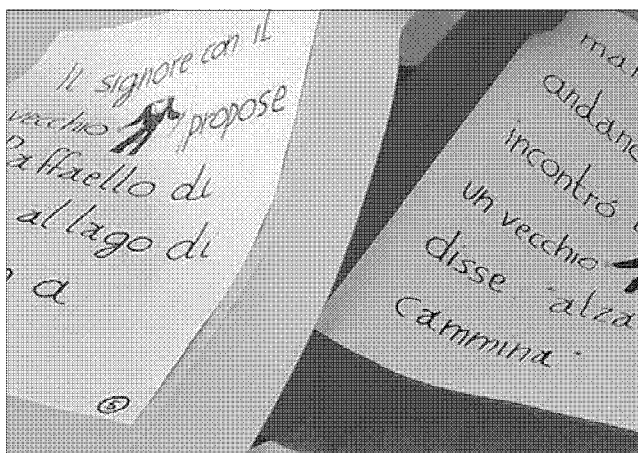 Il signore con il
vecchio propose
Raffaello di
al lago di
a
5
andand
incontrò
un vecchio
disse "alza
cammina"